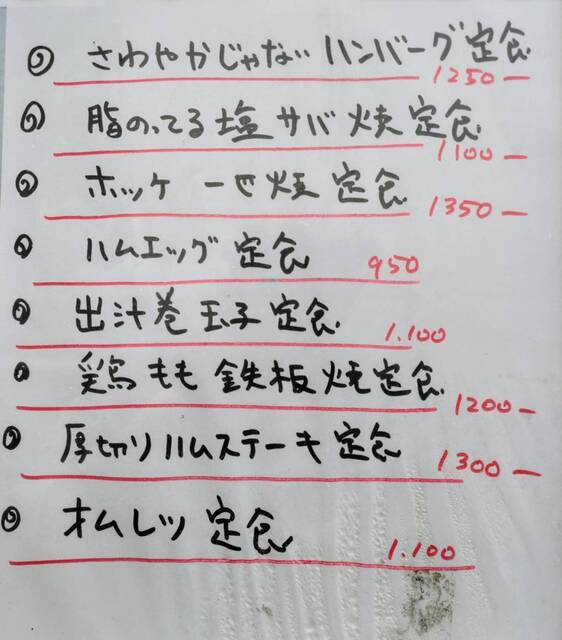 さわやかじゃない ハンバーグ定食
1250ー
脂のってる 塩サバ焼定食
1100ー
ホッケ 一セ焼 定食
1350ー
ハムエッグ 定食
950
出汁巻玉子定食
1.100
鶏もも 鉄板焼定食
1200ー
厚切りハムステーキ定食
1300ー
オムレツ 定食
1.100